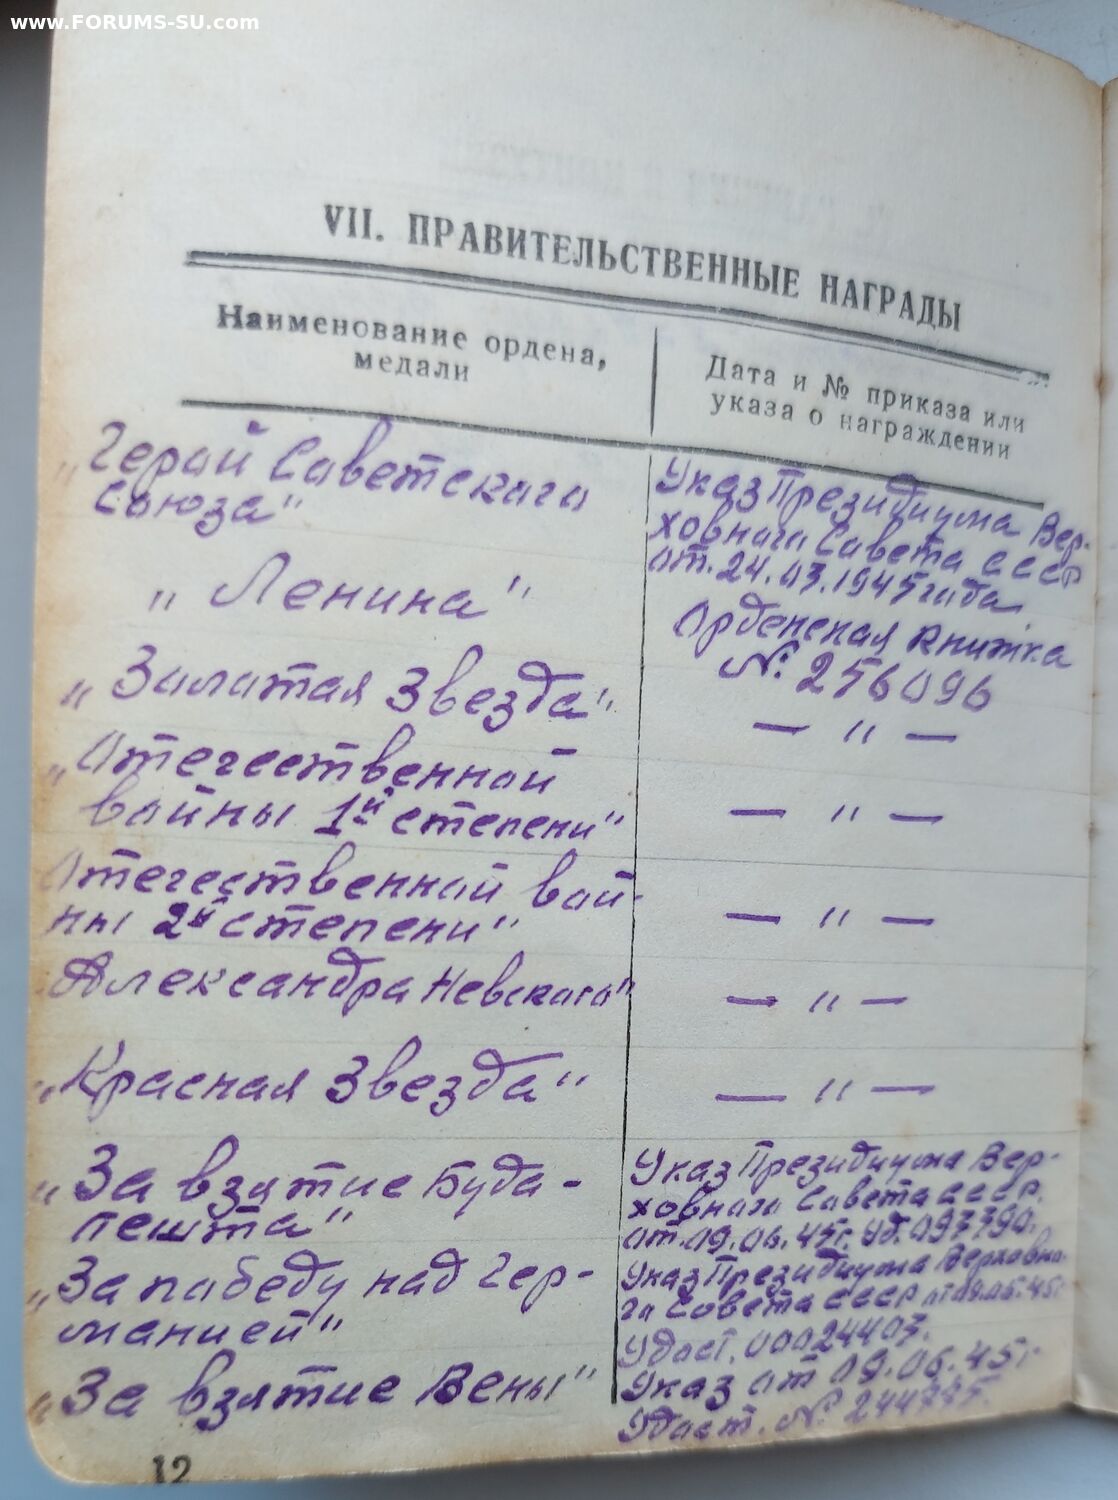 www.FORUMS-SU.com
VII. ПРАВИТЕЛЬСТВЕННЫЕ НАГРАДЫ
Наименование ордена,
медали
Дата и № приказа или
указа о награждении
„Герой Советского
Союза"
Указ Президиума Вер-
ховного Совета СССР
от 24.03.1945 года
„Ленина"
Орденская книжка
№ 256096
„Золотая Звезда"
— " —
„Отечественной
войны 1й степени"
— " —
Отечественной вой-
ны 2й степени"
— " —
Александра Невского"
— " —
„Красная Звезда"
— " —
„За взятие Буда-
пешта"
Указ Президиума Вер-
ховного Совета СССР
от 09.06.45г. Уд. 097790.
„За победу над Гер-
манией"
Указ Президиума Верховно-
го Совета СССР от 09.05.45г
Удост. 00024403.
„За взятие Вены"
Указ от 09.06.45г
Удост. № 244775.
12